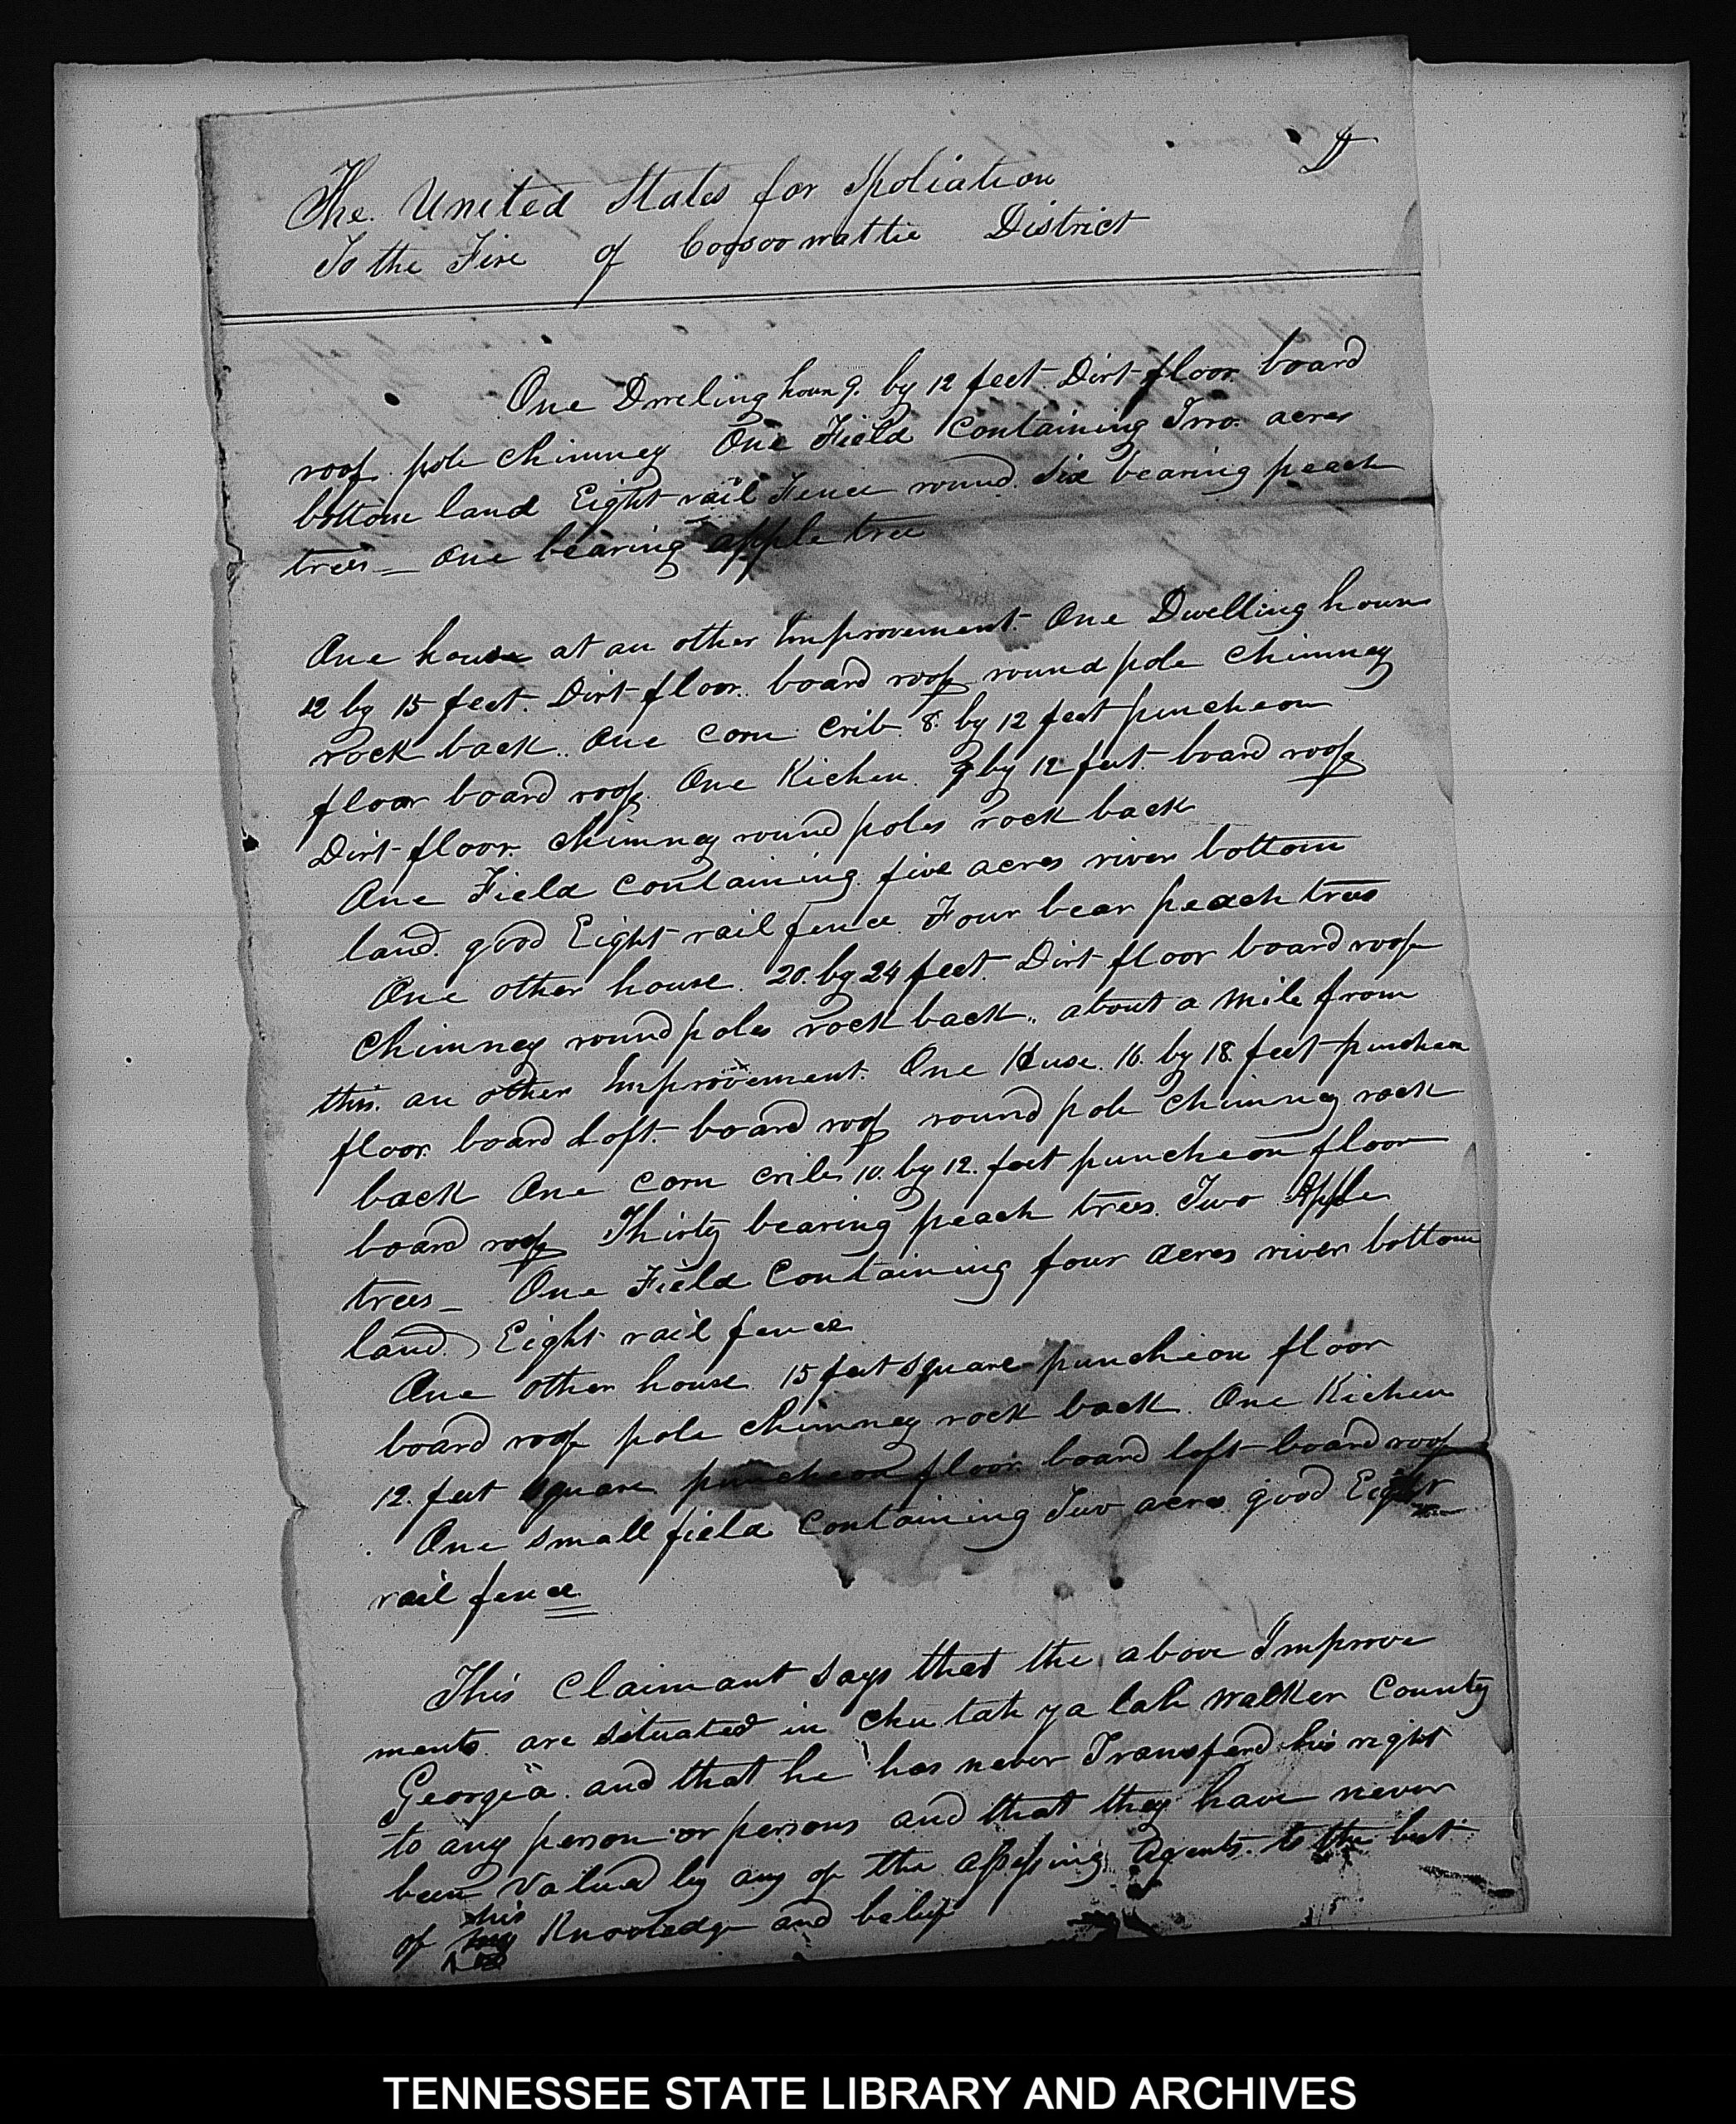 The United States for Spoliation Dr
To the Fire of Coosoowattie District
One Dweling hous 9. by 12 feet. Dirt floor. board
roof. pole chimney One Field Containing Two. acres
bottom land Eight rail Fence round. Six bearing peach
trees — one bearing apple tree
One house at an other Improvement. One Dwelling hous
12 by 15 feet. Dirt floor. board roof round pole chimney
rock back.. One corn crib 8. by 12 feet puncheon
floor board roof. One Kichen. 9 by 12 feet. board roof
Dirt floor. chimney round poles rock back
One Field containing five acres river bottom
land. good Eight rail fence. Four bear peach trees
One other house. 20. by 24 feet. Dirt floor board roof
chimney round poles rock back.. about a mile from
this. an other Improvement. One House. 16. by 18. feet puncheon
floor. board Loft. board roof round pole chimney rock
back One corn crib 10. by 12. feet puncheon floor
board roof Thirty bearing peach trees. Two Apple
trees — One Field Containing four acres river bottom
land. Eight rail fence
One other house. 15 feet square puncheon floor
board roof pole chimney rock back. One Kichen
12. feet square puncheon floor. board loft board roof
One small field containing Two acres good Eight
rail fence
This Claimant says that the above Improve
ments. are situated in Chu tah ya lah Walker County
Georgia. and that he has never Transferd his right
to any person or persons and that they have never
been Valued by any of the assessing Agents. to the best
of his Knowledge and belief
TENNESSEE STATE LIBRARY AND ARCHIVES